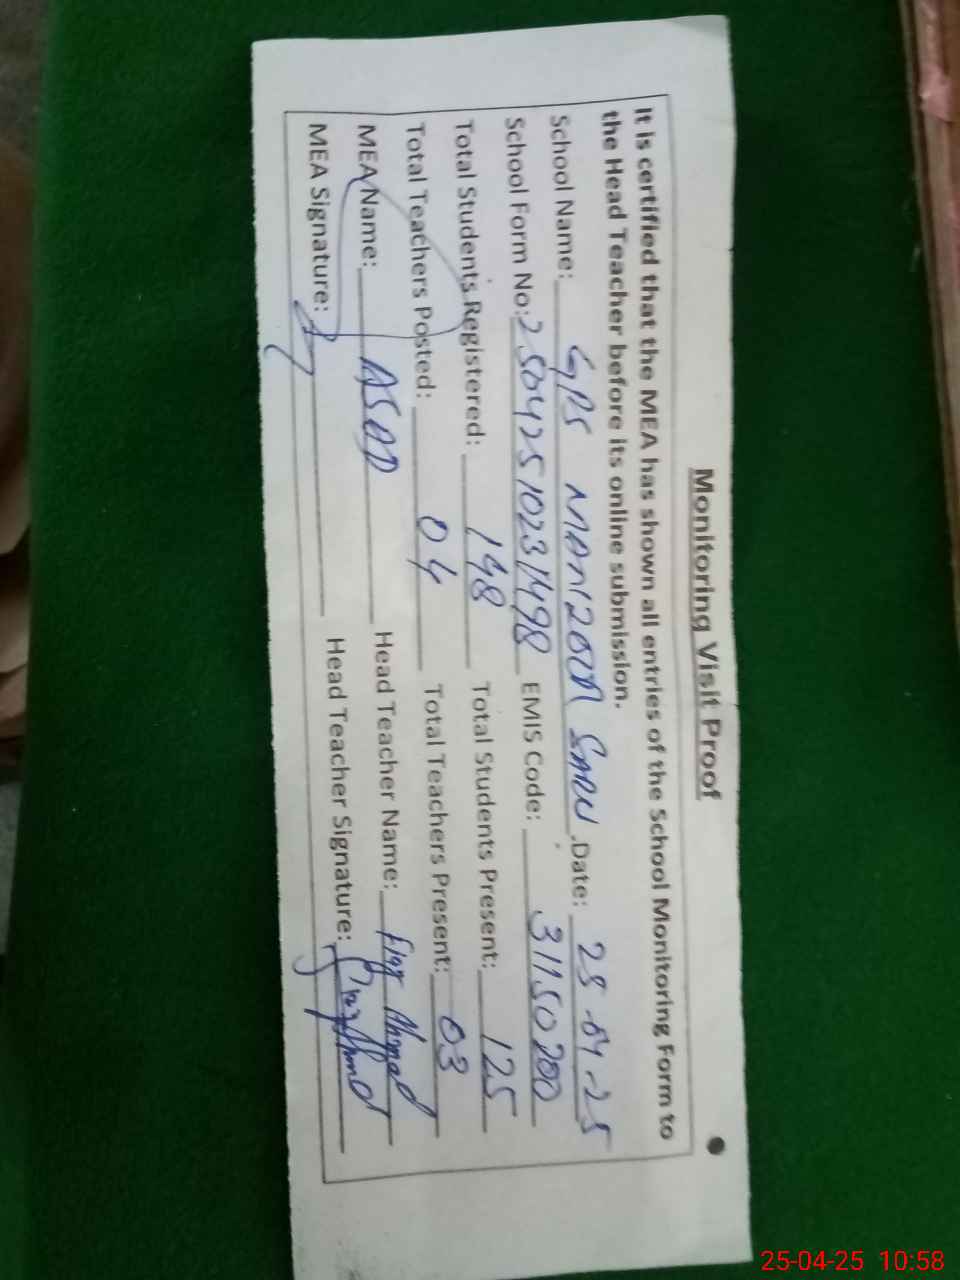 Monitoring Visit Proof
It is certified that the MEA has shown all entries of the School Monitoring Form to
the Head Teacher before its online submission.
School Name: GPS .Date: 25-04-25
School Form No: 25042510231498 EMIS Code: 31150200
Total Students Registered: 148 Total Students Present: 125
Total Teachers Posted: 04 Total Teachers Present: 03
MEA Name: ASAD Head Teacher Name: Ahmad
MEA Signature: Head Teacher Signature:
25-04-25 10:58